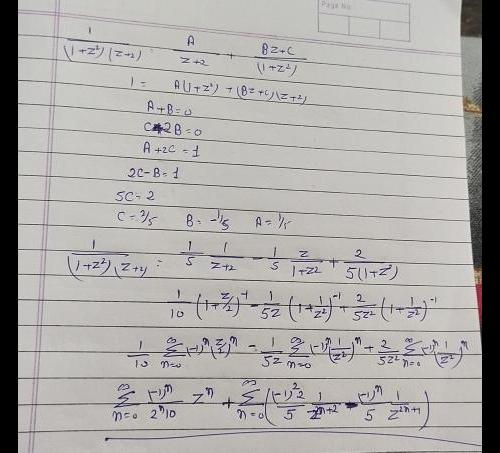 Page No
1/((1+z²)(z+2)) : A/(z+2) + (Bz+C)/(1+z²)
1 = A(1+z²) + (Bz+c)(z+2)
A+B=0
C+2B=0
A+2C=1
2C-B=1
5C=2
C=2/5 B=-1/5 A=1/5
1/((1+z²)(z+2)) = 1/5 1/(z+2) - 1/5 z/(1+z²) + 2/(5(1+z²))
1/10 (1+z/2)⁻¹ - 1/5z (1+1/z²)⁻¹ + 2/5z² (1+1/z²)⁻¹
1/10 ∞Σn=0 (-1)ⁿ(z/2)ⁿ - 1/5z ∞Σn=0 (-1)ⁿ(1/z²)ⁿ + 2/5z² ∞Σn=0 (-1)ⁿ(1/z²)ⁿ
∞Σn=0 (-1)ⁿ/(2ⁿ10) zⁿ + ∞Σn=0 ((-1)²2/5 1/z²ⁿ⁺² - (-1)ⁿ/5 1/z²ⁿ⁺¹)